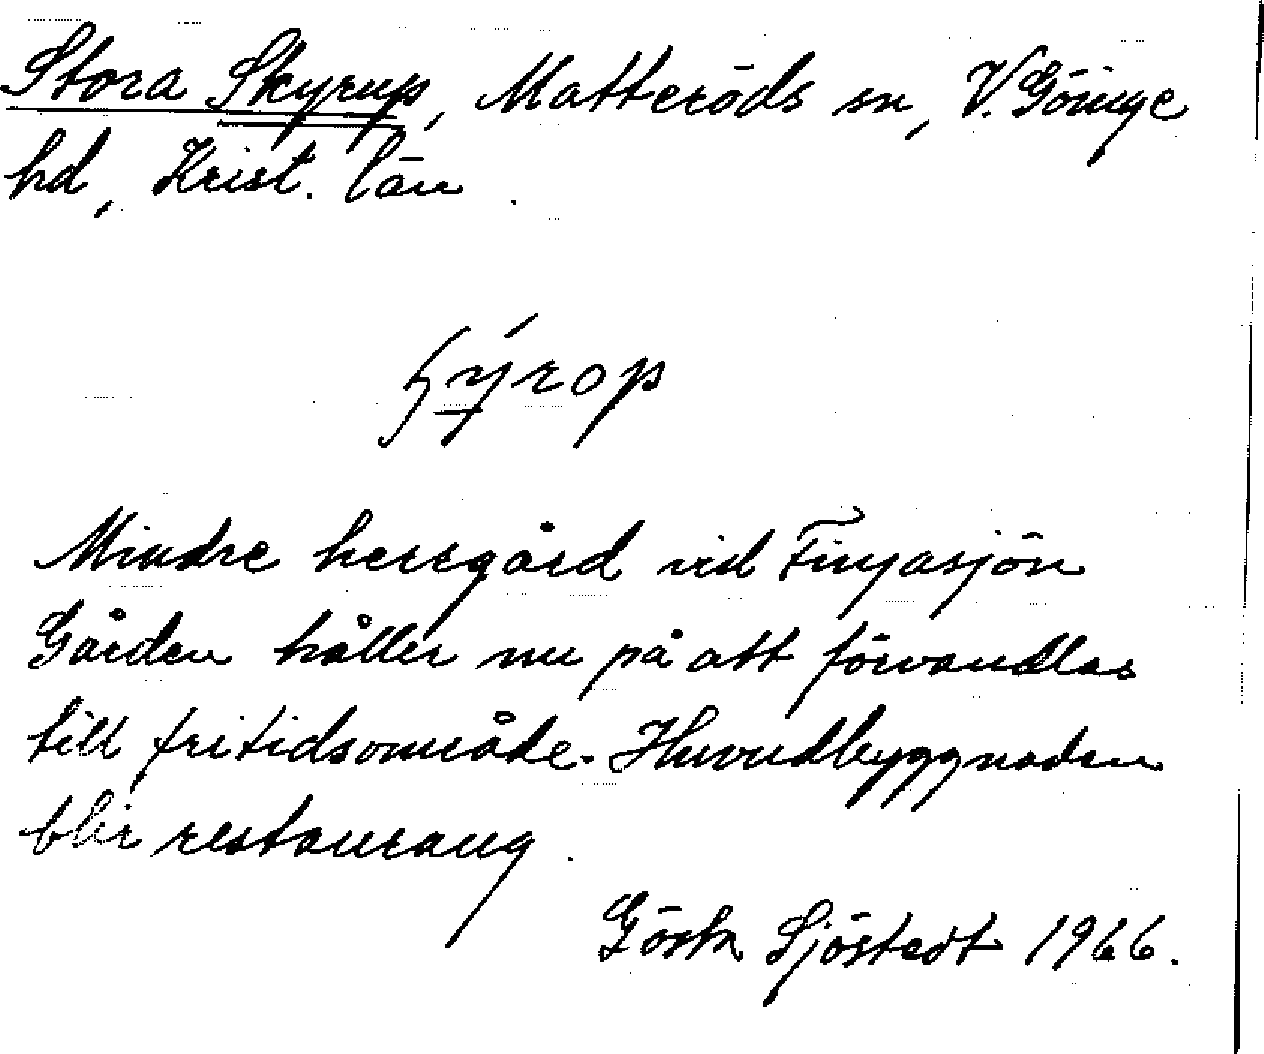 Stora Skyrup, Matteröds sn, V. Göinge
hd, Krist. län.
Mindre herrgård vid Finjasjön
Gården håller nu på att förvandlas
till fritidsområde. Huvudbyggnaden
blir restaurang.
Gösta Sjöstedt 1966.